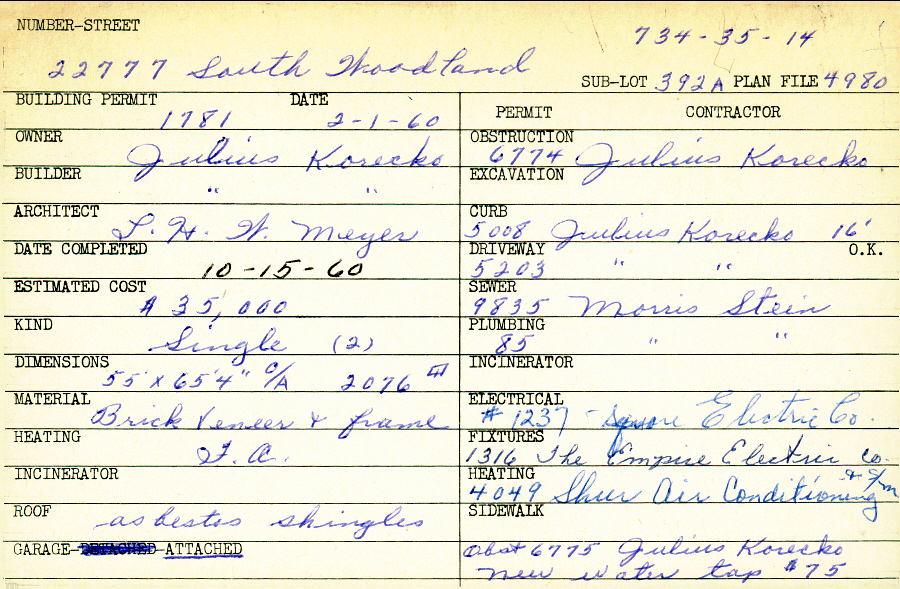 NUMBER-STREET
734-35-14
22777 South Woodland
SUB-LOT 392A PLAN FILE 4980
BUILDING PERMIT DATE
1781 2-1-60
OWNER
Julius Korecko
BUILDER
" "
ARCHITECT
L. H. W. Meyer
DATE COMPLETED
10-15-60
ESTIMATED COST
$ 35,000
KIND
Single (2)
DIMENSIONS
55' x 65'4" C/A 2076
MATERIAL
Brick Veneer & frame
HEATING
F. A.
INCINERATOR
ROOF
asbestos shingles
GARAGE-DETACHED-ATTACHED
PERMIT CONTRACTOR
OBSTRUCTION
6774 Julius Korecko
EXCAVATION
CURB
5008 Julius Korecko 16'
DRIVEWAY O.K.
5203 " "
SEWER
9835 Morris Stein
PLUMBING
85 " "
INCINERATOR
ELECTRICAL
# 1237 - Square Electric Co.
FIXTURES
1316 The Empire Electric Co.
HEATING
4049 Shur Air Conditioning
SIDEWALK
Obst 6775 Julius Korecko
new water tap #75